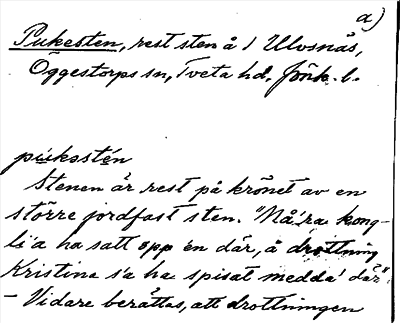 a)
Pukesten, rest sten å 1 Ulvsnäs,
Öggestorps sn, Tveta hd. Jönk. l.
pú̀kestén
Stenen är rest på krönet av en
större jordfast sten. "Nå'ra kong-
li'a ha satt opp en där, å drottning
Kristina s'a ha spisat medda' där".
- Vidare berättas, att drottningen